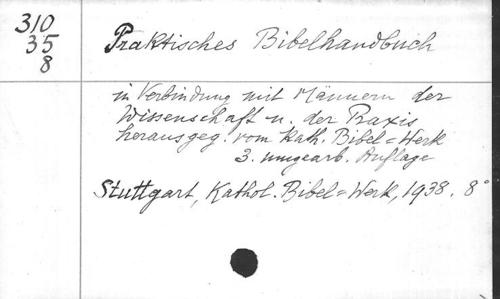 310
35
8
Praktisches Bibelhandbuch
in Verbindung mit Männern der
Wissenschaft u. der Praxis
herausgeg. vom Kath. Bibel=Werk
3. umgearb. Auflage
Stuttgart, Kathol. Bibel=Werk, 1938. 8°